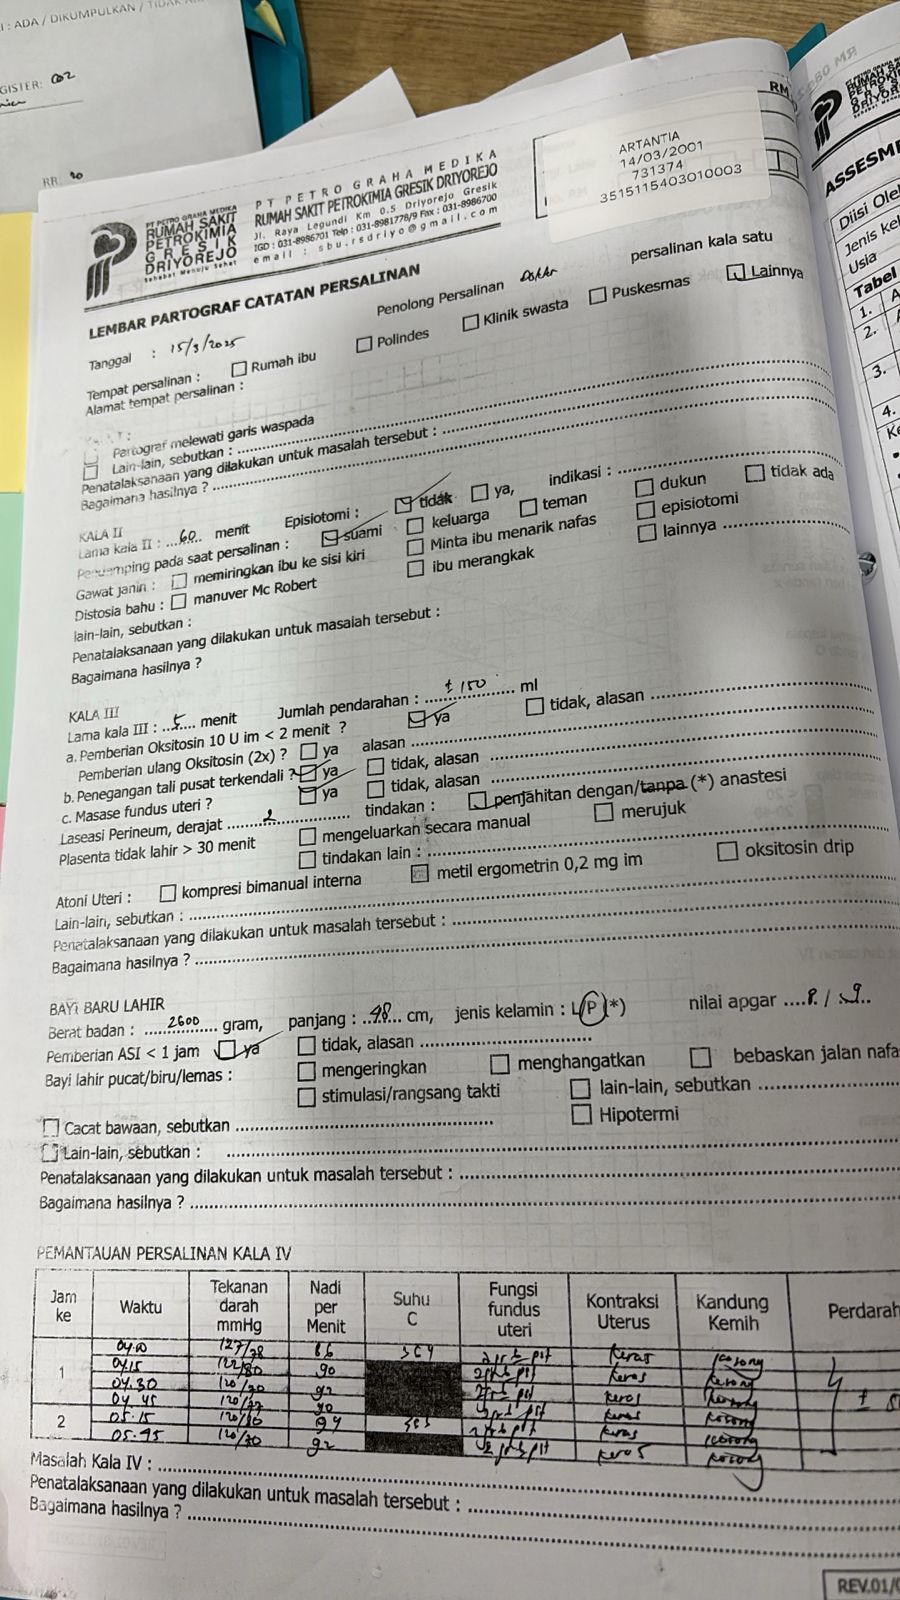 : ADA / DIKUMPULKAN / TIDAK
GISTER: 002
RR. 20
RM
ARTANTIA
14/03/2001
731374
3515115403010003
PT PETRO GRAHA MEDIKA
RUMAH SAKIT
PETROKIMIA
GRESIK
DRIYOREJO
Sahabat Menuju Sehat
PT PETRO GRAHA MEDIKA
RUMAH SAKIT PETROKIMIA GRESIK DRIYOREJO
Jl. Raya Legundi Km 0.5 Driyorejo Gresik
IGD : 031-8986701 Telp : 031-8981778/9 Fax : 031-8986700
email : sbu.rsdriyo@gmail.com
LEMBAR PARTOGRAF CATATAN PERSALINAN
Tanggal : 15/3/2025 Penolong Persalinan Dokter persalinan kala satu
Tempat persalinan : Rumah ibu Polindes Klinik swasta Puskesmas Lainnya
Alamat tempat persalinan :
Partograf melewati garis waspada
Lain-lain, sebutkan :
Penatalaksanaan yang dilakukan untuk masalah tersebut :
Bagaimana hasilnya ?
KALA II
Lama kala II : 60 menit Episiotomi : tidak ya, indikasi :
Pendamping pada saat persalinan : suami keluarga teman dukun tidak ada
Gawat janin : memiringkan ibu ke sisi kiri Minta ibu menarik nafas episiotomi
Distosia bahu : manuver Mc Robert ibu merangkak lainnya
lain-lain, sebutkan :
Penatalaksanaan yang dilakukan untuk masalah tersebut :
Bagaimana hasilnya ?
KALA III
Lama kala III : 5 menit Jumlah pendarahan : ± 150 ml
a. Pemberian Oksitosin 10 U im < 2 menit ? ya tidak, alasan
Pemberian ulang Oksitosin (2x) ? ya alasan
b. Penegangan tali pusat terkendali ? ya tidak, alasan
c. Masase fundus uteri ? ya tidak, alasan
Laseasi Perineum, derajat 2 tindakan : penjahitan dengan/tanpa (*) anastesi
Plasenta tidak lahir > 30 menit mengeluarkan secara manual merujuk
tindakan lain :
Atoni Uteri : kompresi bimanual interna metil ergometrin 0,2 mg im oksitosin drip
Lain-lain, sebutkan :
Penatalaksanaan yang dilakukan untuk masalah tersebut :
Bagaimana hasilnya ?
BAYI BARU LAHIR
Berat badan : 2600 gram, panjang : 48 cm, jenis kelamin : L/P (*) nilai apgar 8 / 9
Pemberian ASI < 1 jam ya tidak, alasan
Bayi lahir pucat/biru/lemas : mengeringkan menghangatkan bebaskan jalan nafa
stimulasi/rangsang takti lain-lain, sebutkan
Cacat bawaan, sebutkan Hipotermi
Lain-lain, sebutkan :
Penatalaksanaan yang dilakukan untuk masalah tersebut :
Bagaimana hasilnya ?
PEMANTAUAN PERSALINAN KALA IV
Jam ke Waktu Tekanan darah mmHg Nadi per Menit Suhu C Fungsi fundus uteri Kontraksi Uterus Kandung Kemih Perdarah
1 04.00 127/78 86 364 2 jrb pst keras kosong
04.15 122/80 90 2 jrb pst keras kosong
04.30 120/70 92 2 jrb pst keras kosong
04.45 120/77 90 2 jrb pst keras kosong
2 05.15 120/80 94 365 2 jrb pst keras kosong
05.45 120/70 92 2 jrb pst keras kosong
Masalah Kala IV :
Penatalaksanaan yang dilakukan untuk masalah tersebut :
Bagaimana hasilnya ?
REV.01/0
RUMAH SAK
PETROKIM
DRIYOR
ASSESME
Diisi Ole
Jenis kel
Usia
Tabel
1. A
2.
3.
4.